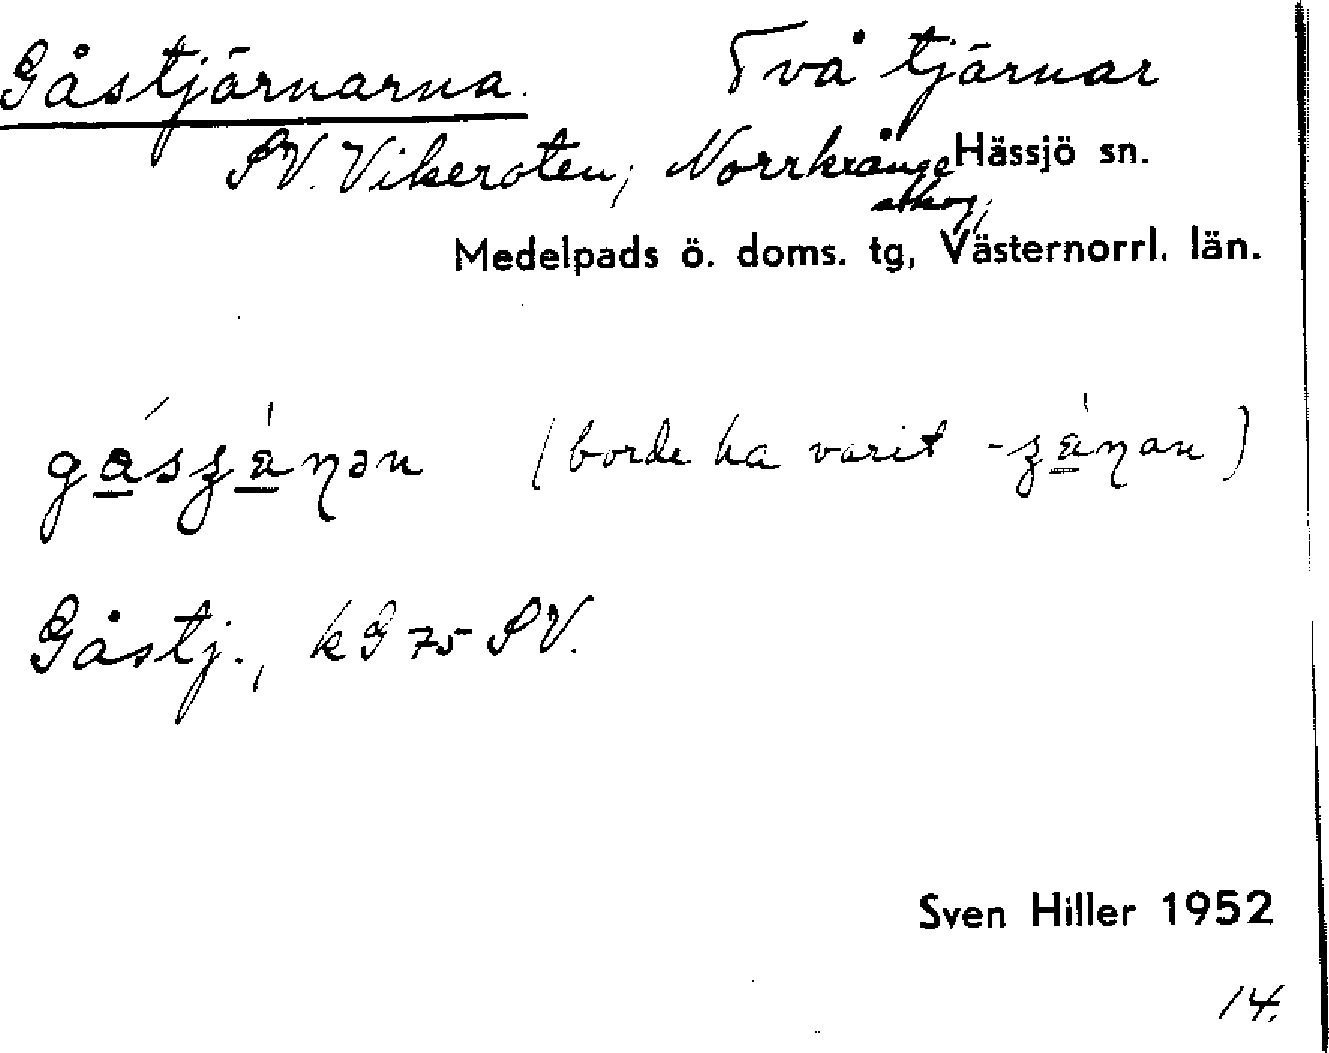 Gåstjärnarna. Två tjärnar
SV. Vikeroten, Norrkrånge Hässjö sn.
skog,
Medelpads ö. doms. tg, Västernorrl. län.
(borde ha varit
Gåstj., k G 75 SV.
Sven Hiller 1952
14.